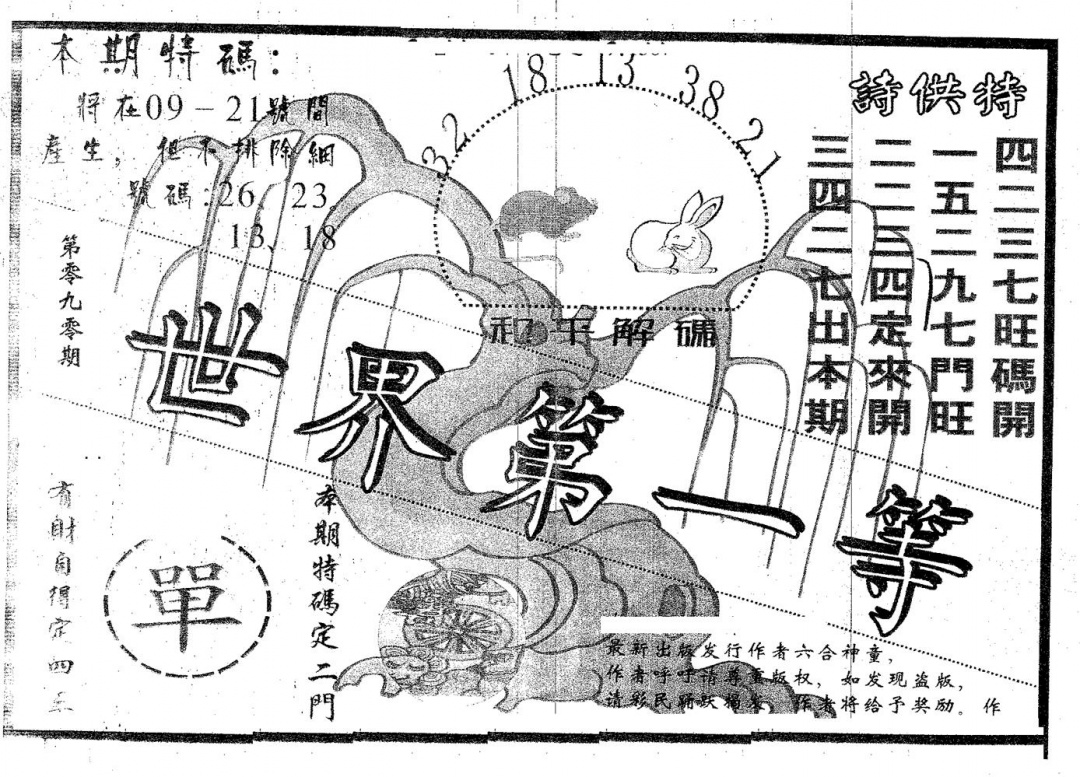 本期特碼：
將在09－21號間
產生，但不排除細
號碼:26、23、
13、18
32 18 13 38 21
特供詩
四二三七旺碼開
一五二九七門旺
二二三四定來開
三四二七出本期
第零九零期
和平解碼
世界第一等
有財自得定四
單
本期特碼定二門
最新出版发行作者六合神童，
作者呼吁请尊重版权，如发现盗版，
请彩民踊跃揭发，作者将给予奖励。作